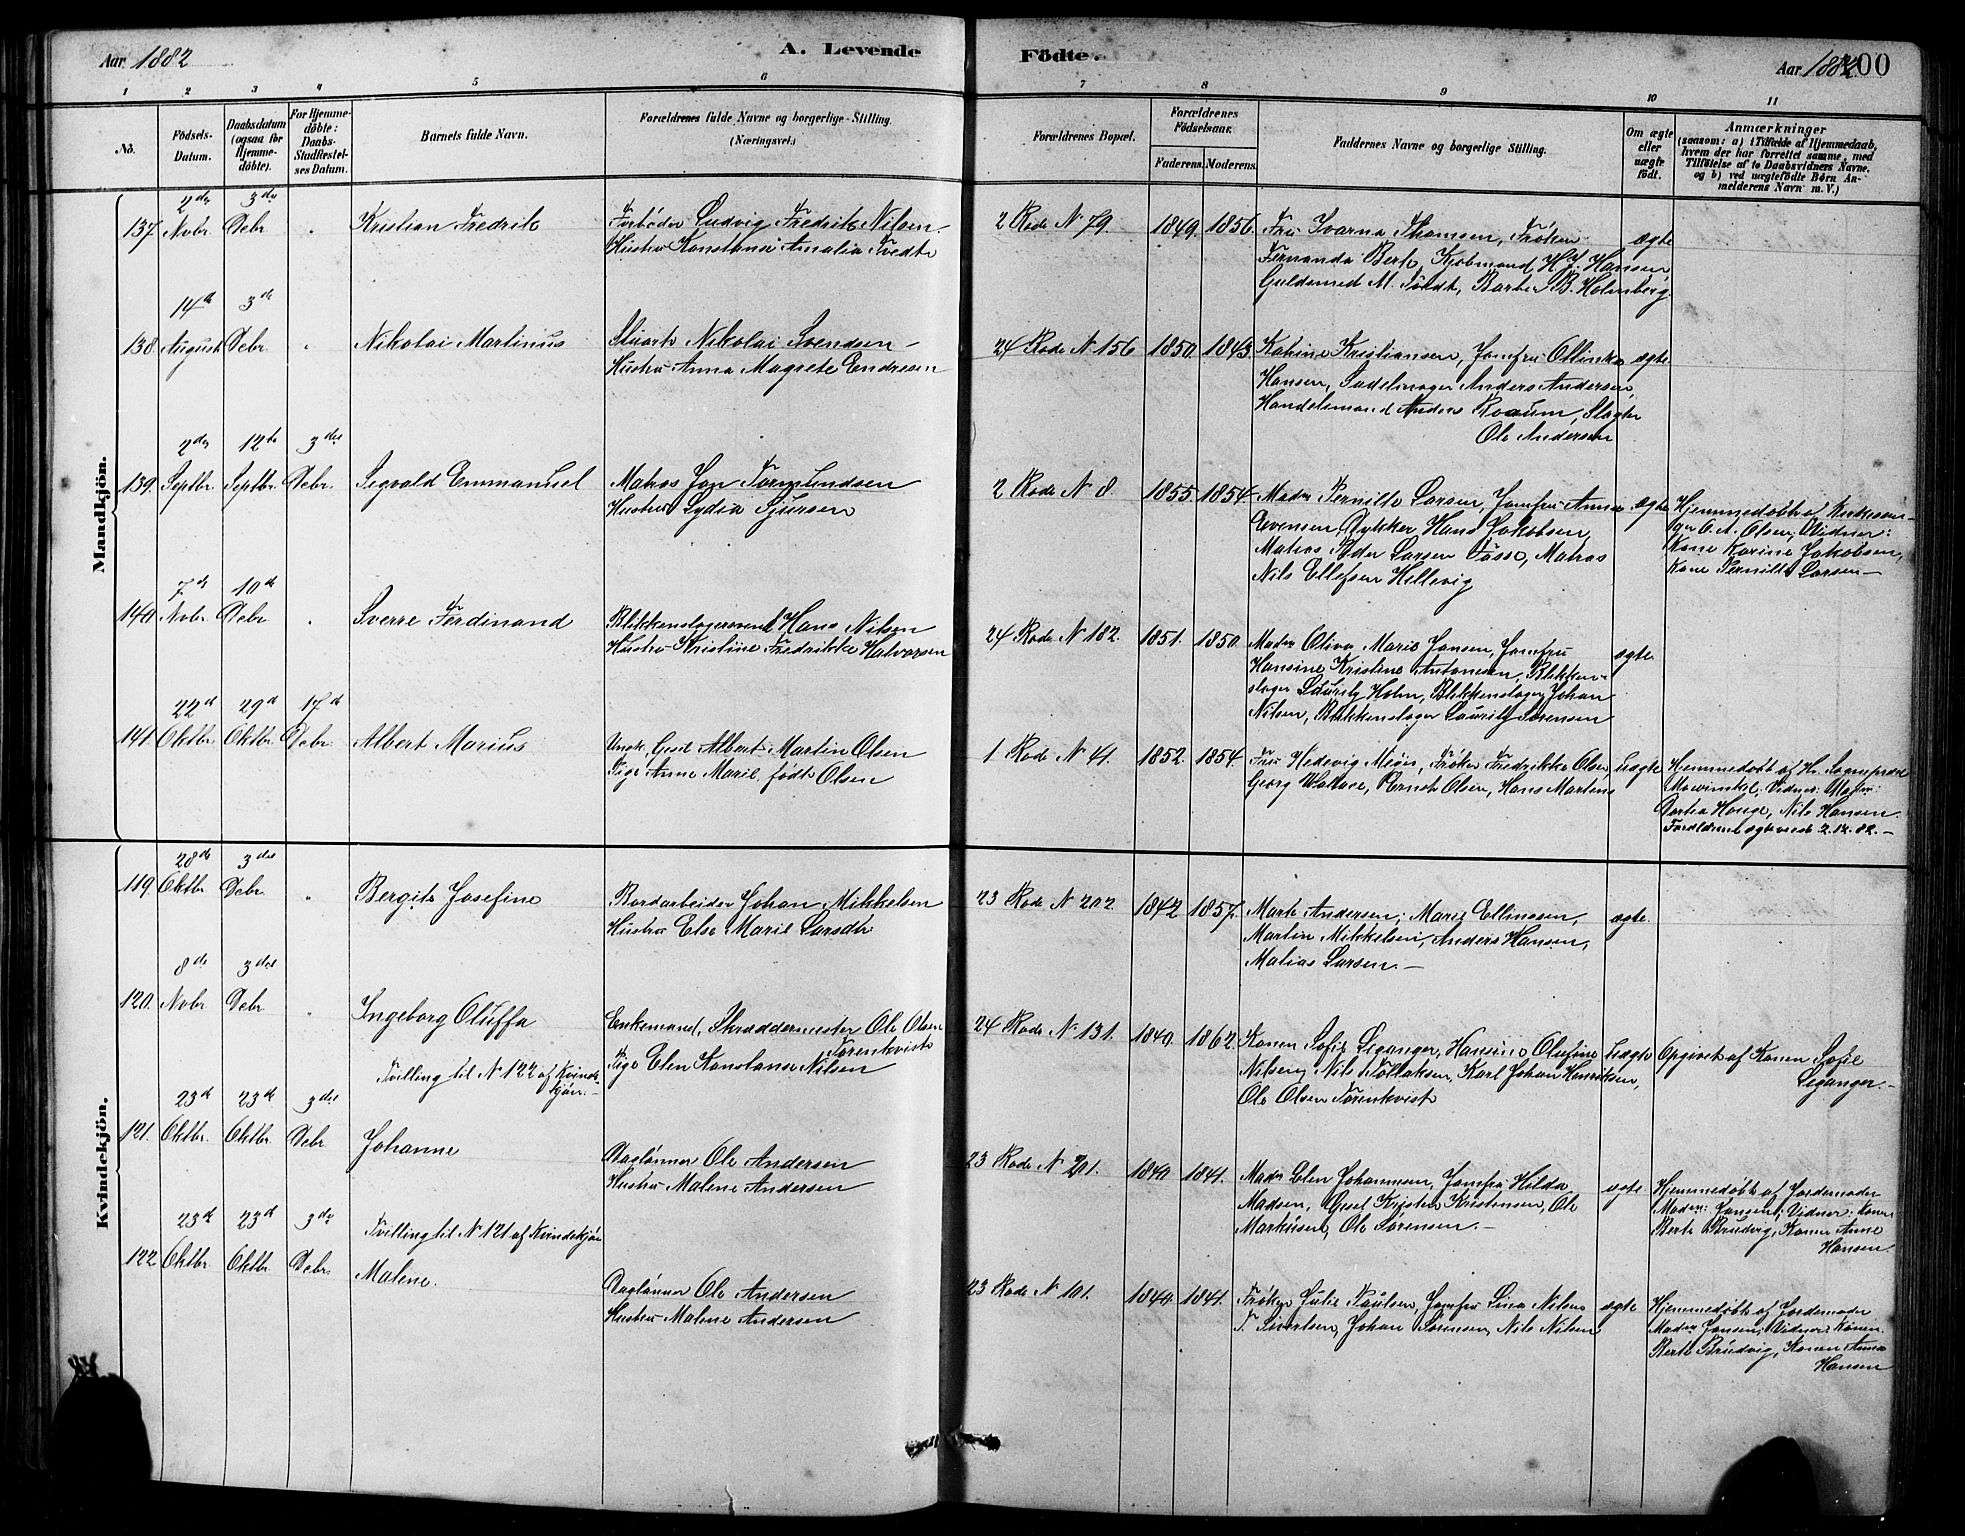 Aar 1882
A. Levende
Födte.
Aar 1882
100
1 2 3 4 5 6 7 8 9 10 11
No.
Födsels-
Datum.
Daabsdatum
(ogsaa for
Hjemme-
döbte).
For Hjemme-
döbte:
Daabs-
Stadfæstel-
ses Datum.
Barnets fulde Navn.
Forældrenes fulde Navne og borgerlige Stilling.
(Næringsvei.)
Forældrenes Bopæl.
Forældrenes
Födselsaar.
Faderens. Moderens.
Faddernes Navne og borgerlige Stilling.
Om ægte
eller
uægte
födt.
Anmærkninger
(saasom: a) i Tilfælde af Hjemmedaab,
hvem der har forrettet samme, med
Tilföielse af to Daabsvidners Navne.
og b) ved uægtefödte Börn An-
melderens Navn m. V.)
Mandkjön.
137. 2den Novbr 3die Debr " Kristian Fredrik
Ludvig Fredrik Nilsen.
Hustru Konstanse Amalia Tvedt
2 Rode N 79. 1849. 1856.
Fru Ivarna Thomsen, Frøken
Fernanda Berk, Kjøbmand H. J. Hansen,
Guldsmed M. Tvedt, Barber B. Holmberg.
ægte
138. 14de August 3die Debr. " Nikolai Martinus
Stuart Nikolai Svendsen
Hustru Anna Magrete Endresen
24 Rode N 156 1850. 1843.
Katrine Kristiansen, Jomfru Ollinka
Hansen, Sadelmager Anders Andersen,
Handelsmand Anders Roaum, Slagter
Ole Andersen
ægte.
139. 2den Septbr. 12te Septbr. 3die Debr. Sigvald Emmanuel
Matros Jan Tormundsen
Hustru Lydia Sjursen
2 Rode N 8. 1855. 1854
Madm Pernille Larsen, Jomfru Anna
Evensen, Dykker Hans Jakobsen,
Matros Peder Larsen Fosse, Matros
Nils Ellefsen Hellevig
ægte
Hjemmedøbt af Kirkesan-
ger O. A. Olsen; Vidner:
Kone Karine Jakobsen,
Kone Pernille Larsen —
140. 7de Novbr. 10de Debr. " Sverre Ferdinand
Blikkenslagersvend Hans Nilsen
Hustru Kristine Fredrikke Halvorsen
24 Rode N 182. 1851. 1850.
Madm Oliva Marie Jansen, Jomfru
Hansine Kristine Antonesen, Blikken-
slager Lauritz Holm, Blikkenslager Johan
Nilsen, Blikkenslager Lauritz Sørensen
ægte.
141. 22de Oktbr. 29de Oktbr. 17de Debr. Albert Marius
Ungk. Gesel Albert Martin Olsen
Pige Anne Marie født Olsen
1 Rode N 41. 1852. 1854.
Fru Hedevig Meyer, Frøken Fredrikke Olsen,
Georg Wallase, Bernt Olsen, Hans Martens
Uægte
Hjemmedøbt af Hr. Sogneprest
Mowinkel; Vidner: Madm:
Dortea Hauge, Nils Hansen.
Forældrene ægteviede 2.12.82. —
Kvindekjön.
119. 28de Oktbr. 3die Debr. " Bergite Josefine
Bordarbeider Johan Mikkelsen
Hustru Else Marie Larsdtr
23 Rode N 202. 1842 1857.
Marte Andersen; Marie Ellingsen,
Martin Mikkelsen, Anders Hansen,
Matias Larsen. —
ægte.
120. 8de Novbr 3die Debr " Ingeborg Oluffa
Enkemand, Skræddermester Ole Olsen
Førenkvist
Pige Elen Konstanse Nilsen
Tvilling til N 122 af Kvinde-
kjøn. —
24 Rode N 131. 1840. 1862.
Konen Sofie Leganger, Hansine Olufine
Nilsen, Nils Tollaksen, Karl Johan Henriksen,
Ole Olsen Førenkvist
Uægte
Opgivet af Konen Sofie
Leganger. —
121. 23de Oktbr. 23de Oktbr. 3die Debr. Johanne
Daglønner Ole Andersen
Hustru Malene Andersen
23 Rode N 201. 1840 1841.
Madm Elen Johannesen, Jomfru Hilda
Madsen, Gesel Kristen Kristensen, Ole
Markusen, Ole Sørensen. —
ægte
Hjemmedøbt af Jordemoder
Madm: Jansen; Vidner: Konen
Berte Brudvig, Konen Anne
Hansen.
Tvilling til N 121 af Kvindekjøn
122 23de Oktbr. 23de Oktbr. 3die Debr. Malene.
Daglønner Ole Andersen
Hustru Malene Andersen
23 Rode N 101. 1840. 1841.
Frøken Julie Paulsen, Jomfru Lina Nilsen
T. Sivertsen, Johan Sørensen, Nils Nilsen
ægte
Hjemmedøbt af Jordemoder
Madm Jansen; Vidner: Konen
Berte Brudvig, Konen Anna
Hansen